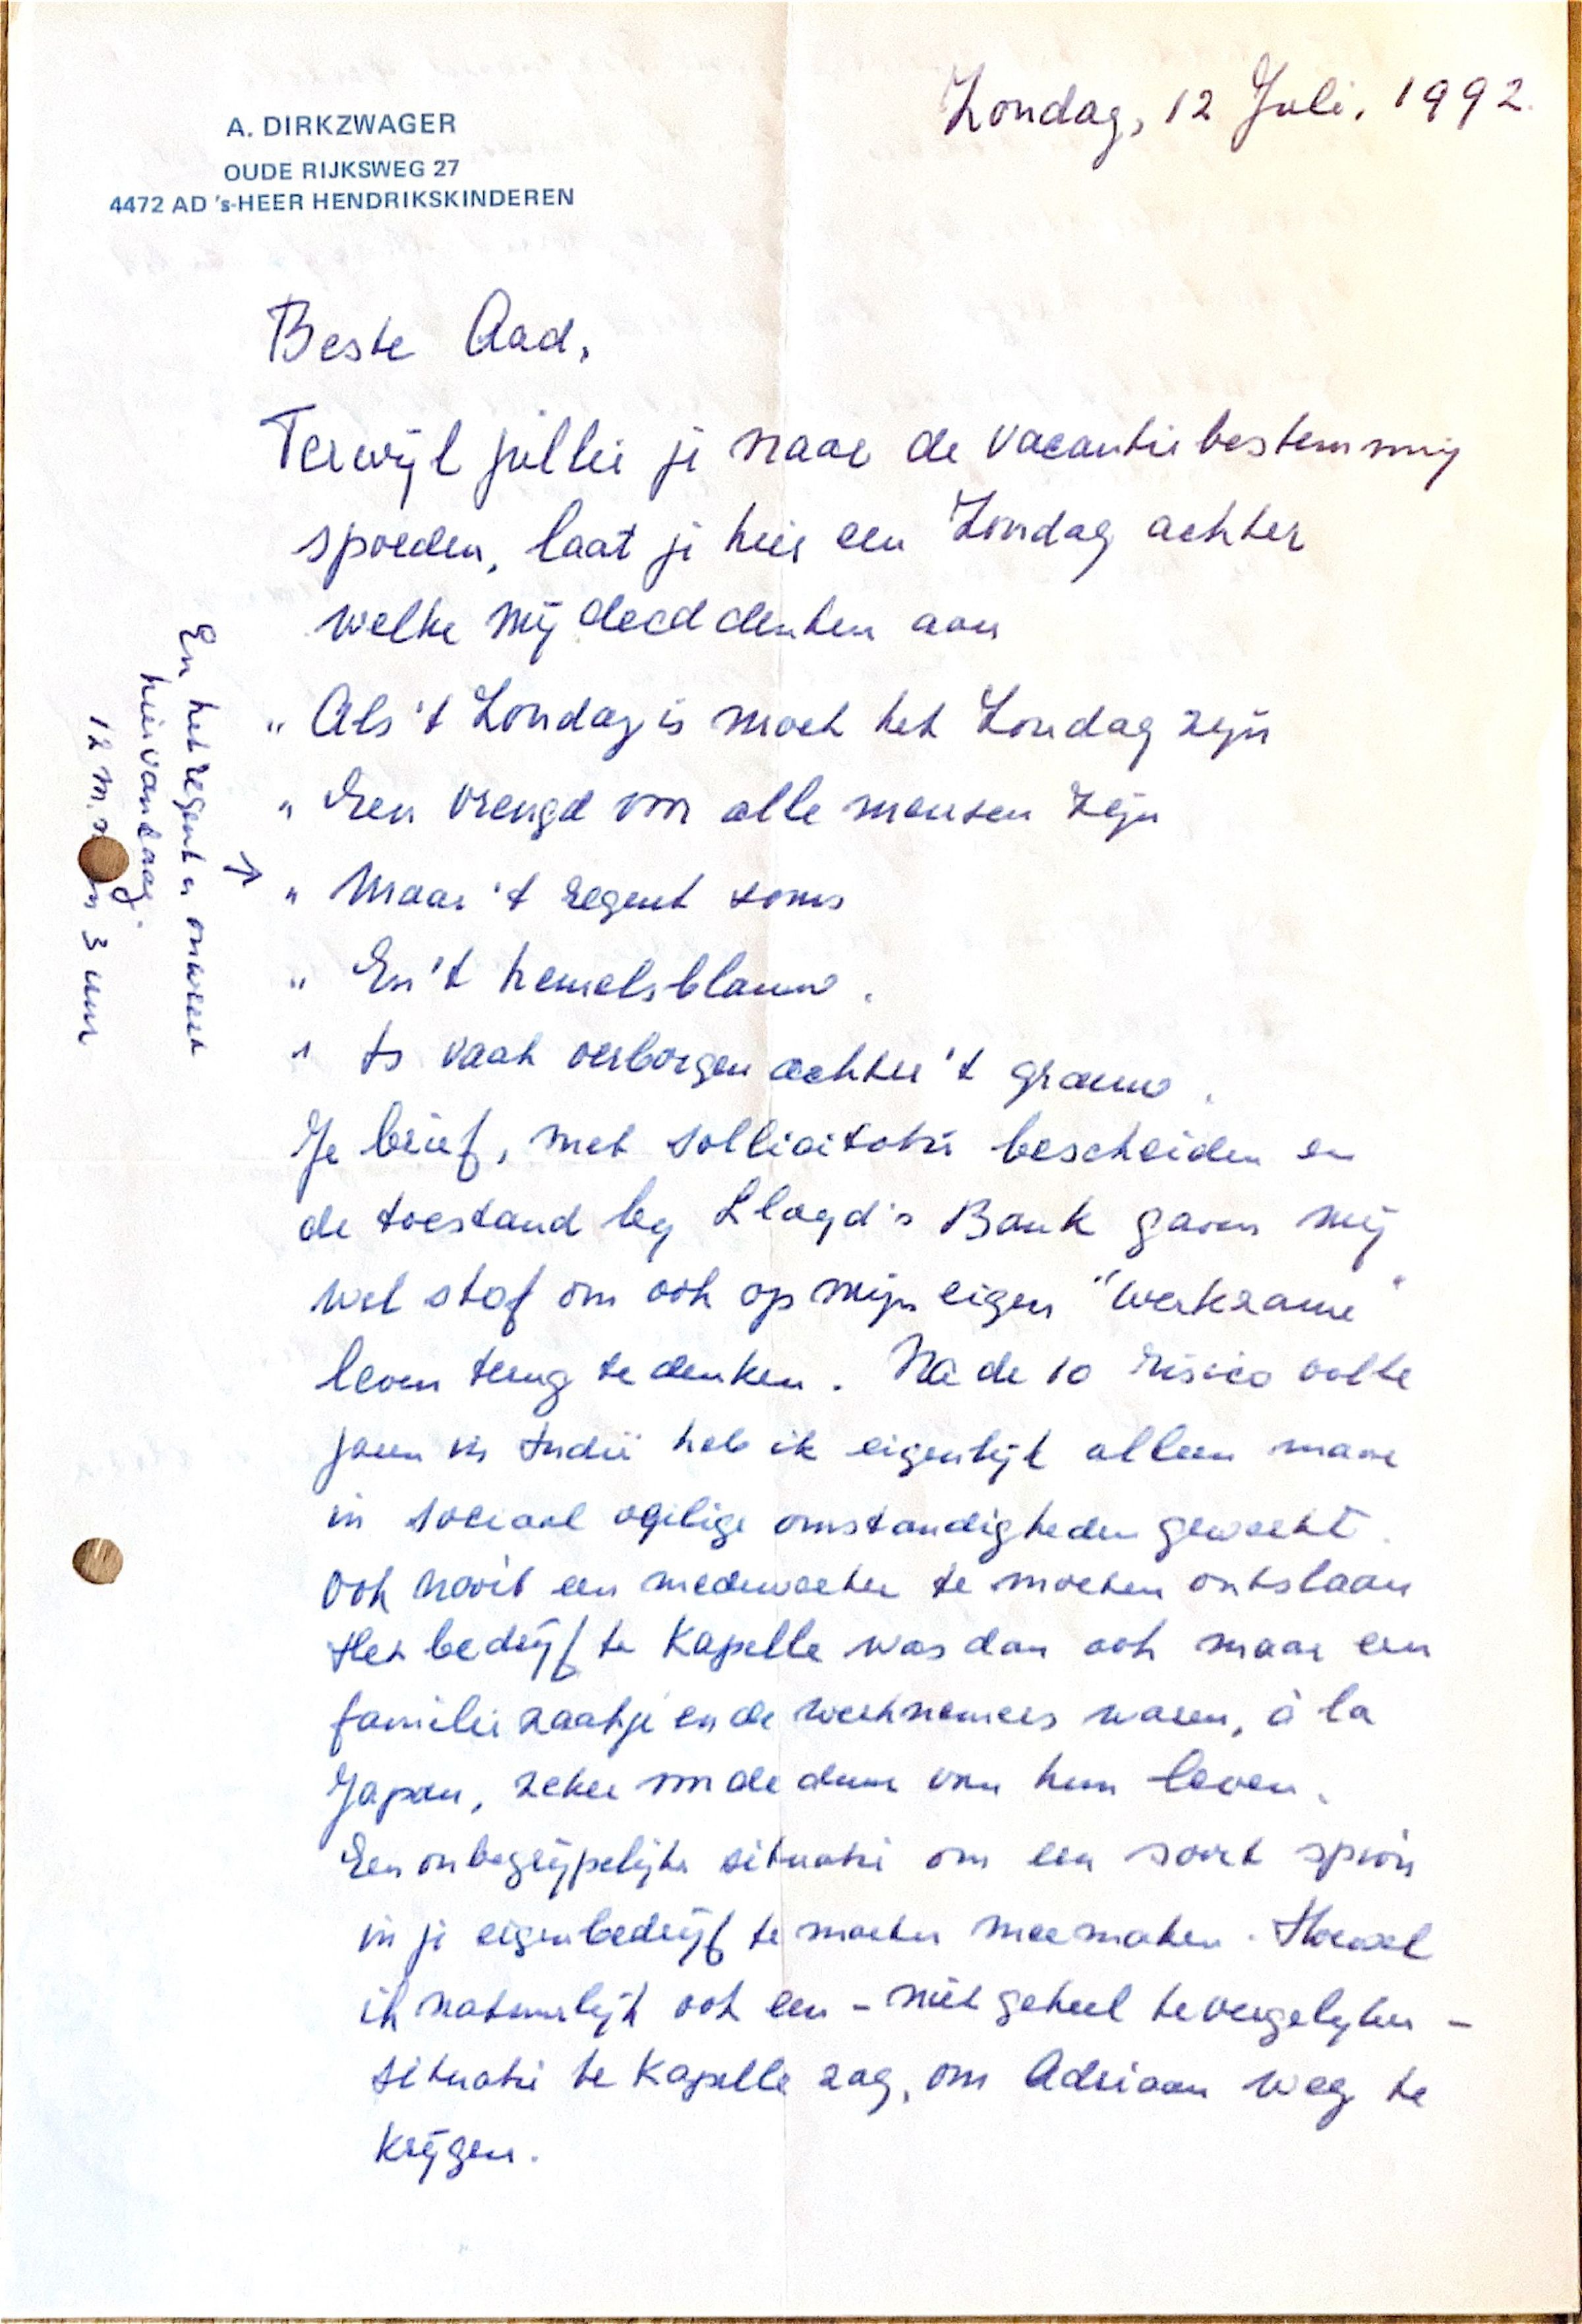 A. DIRKZWAGER
OUDE RIJKSWEG 27
4472 AD 's-HEER HENDRIKSKINDEREN
Zondag, 12 Juli, 1992.
Beste Aad,
Terwijl jullie je naar de vacantiebestemming
spoeden, laat je hier een Zondag achter
welke mij deed denken aan
" Als 't Zondag is moet het Zondag zijn
" Een vreugd voor alle mensen zijn
" Maar 't regent soms
" En 't hemelsblauw.
" Is vaak verborgen achter 't grauw.
En het regent en onweert
hier vandaag.
12 m.m. in 3 uur
Je brief, met sollicitatie bescheiden en
de toestand by Lloyd's Bank gaven mij
wel stof om ook op mijn eigen "werkzame"
leven terug te denken. Na de 10 risico volle
jaren in Indië heb ik eigenlijk alleen maar
in sociaal veilige omstandigheden gewerkt.
Ook nooit een medewerker te moeten ontslaan
Het bedrijf te Kapelle was dan ook maar een
familie zaakje en de werknemers waren, à la
Japan, zeker voor de duur van hun leven.
Een onbegrijpelijke situatie om een soort spion
in je eigen bedrijf te moeten meemaken. Hoewel
ik natuurlijk ook een - niet geheel te vergelyken -
situatie te Kapelle zag, om Adriaan weg te
krijgen.